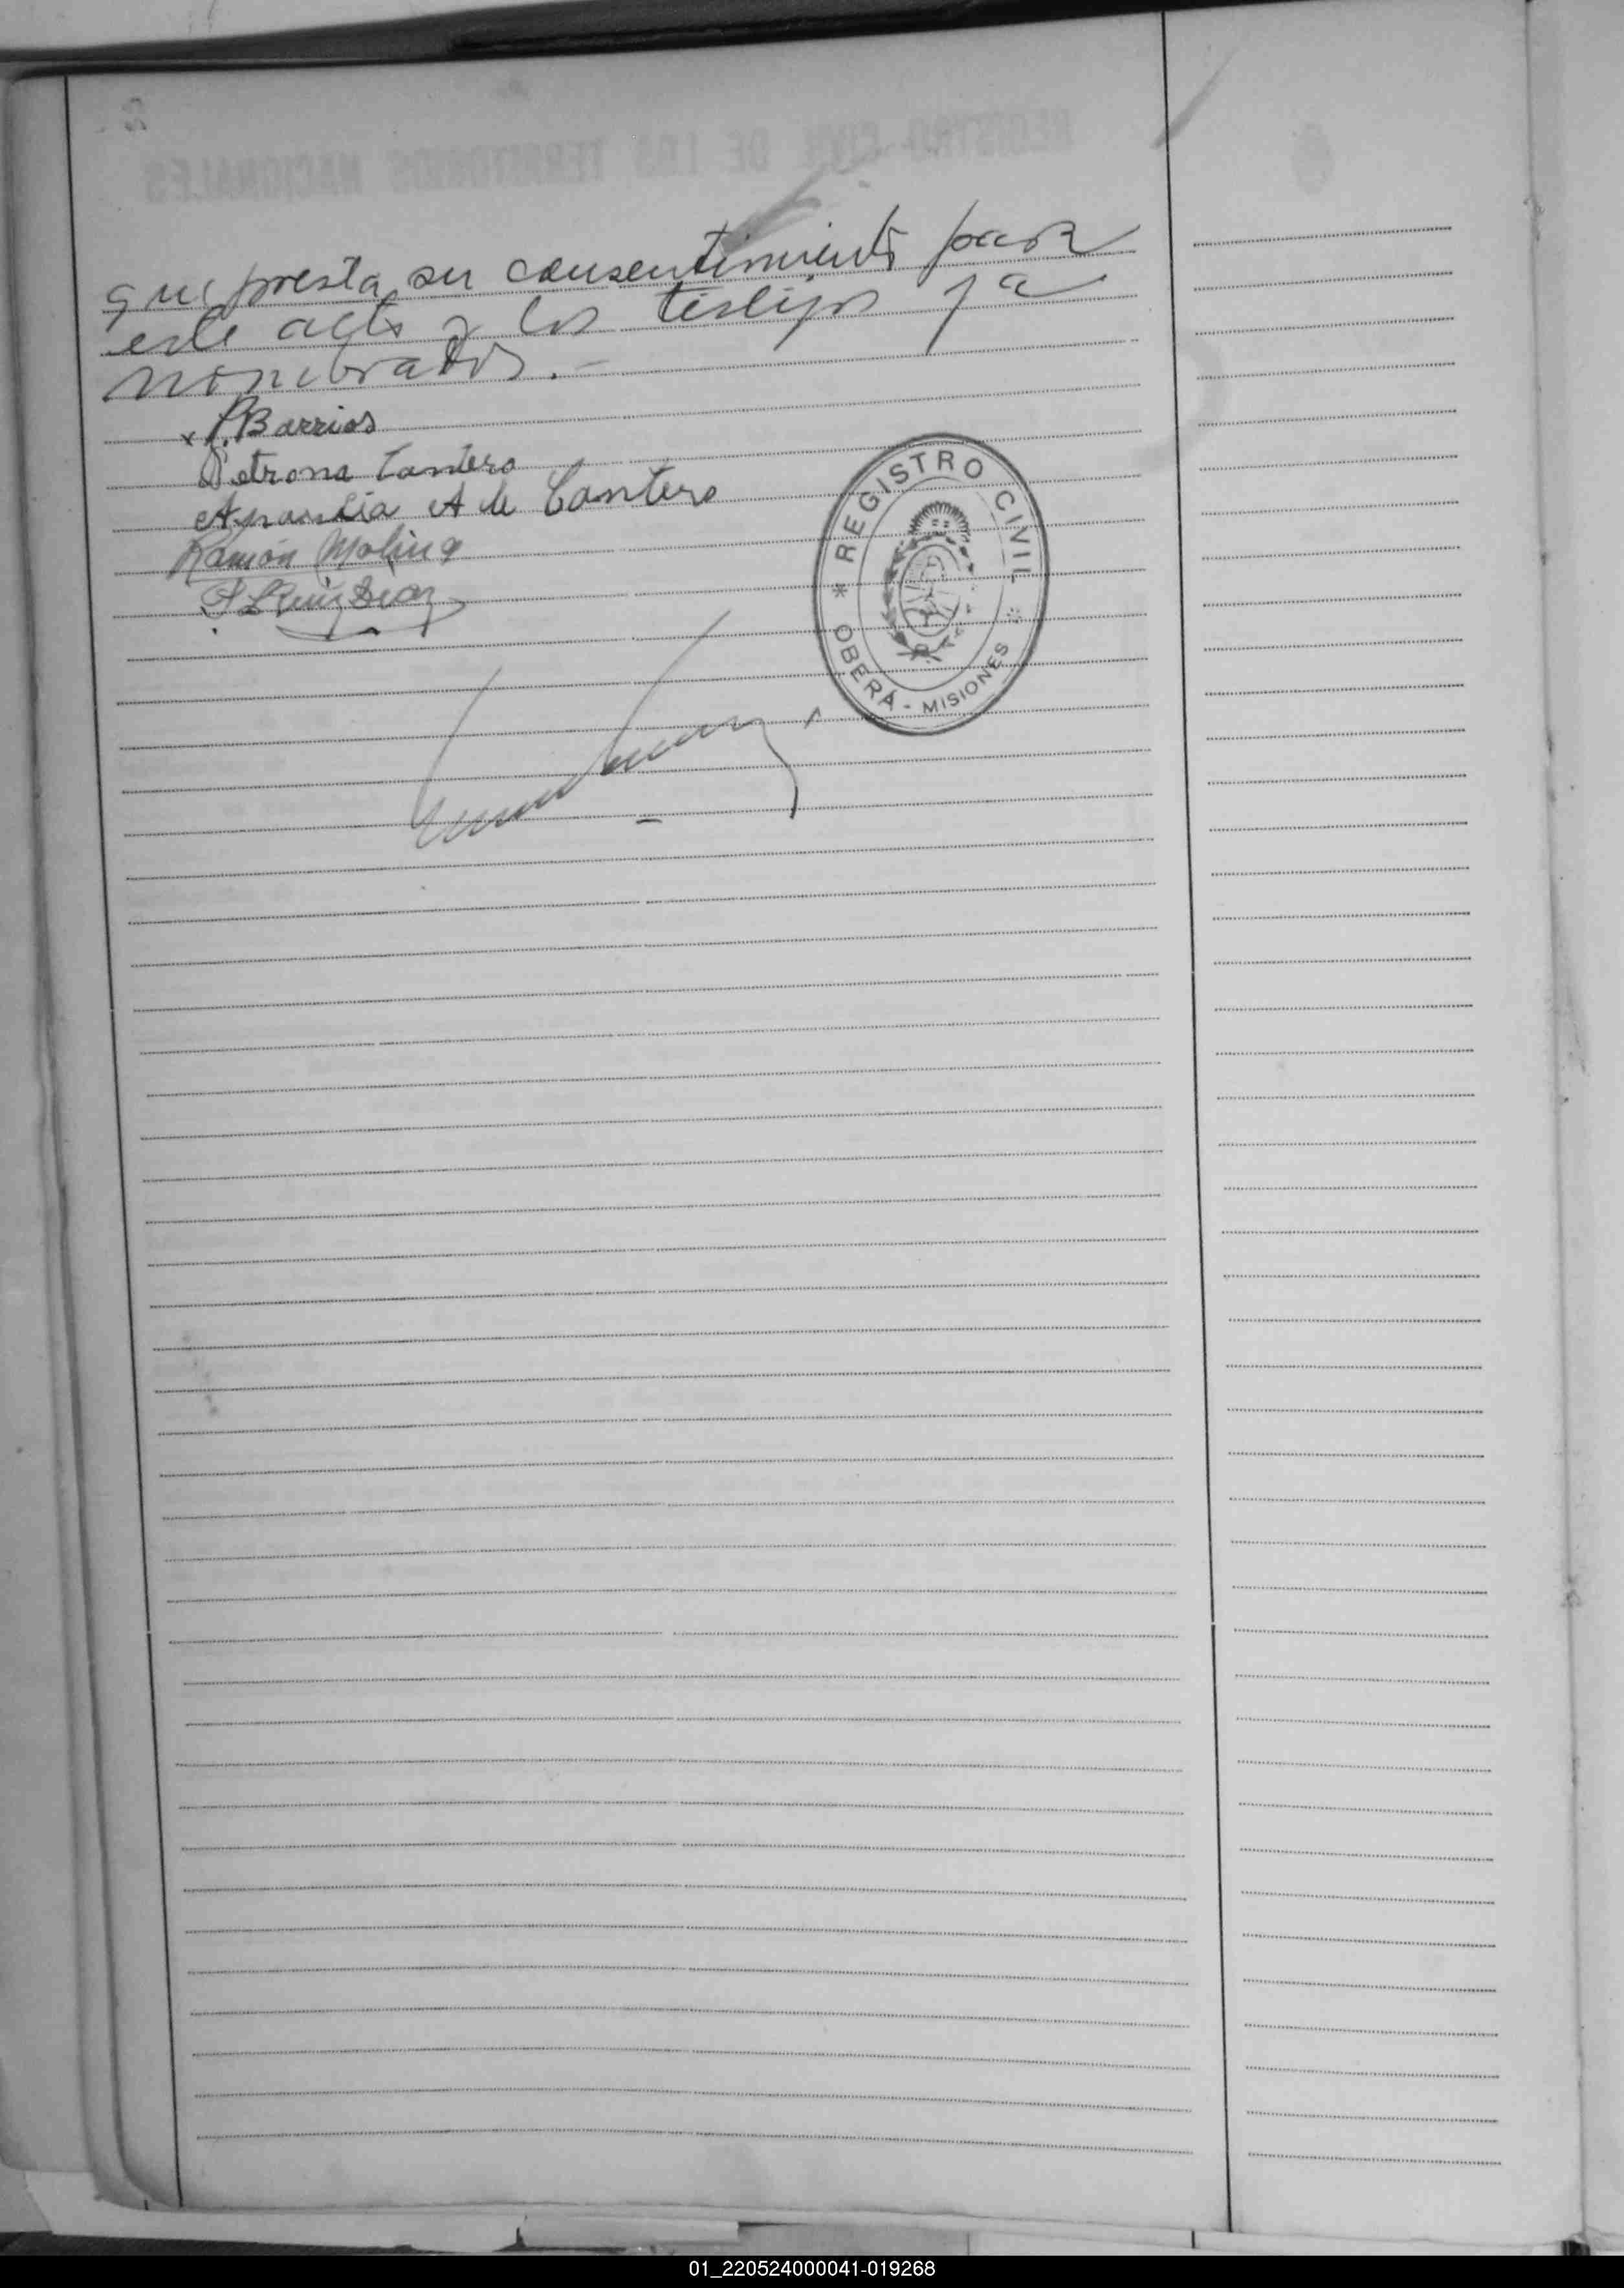 que presta su consentimiento para
este acto y los testigos ya
nombrados.-
x P. Barrios
Petrona Cantero
A de Cantero
Ramón Molina
Ruiz Diaz
* REGISTRO CIVIL *
OBERÁ - MISIONES
01_220524000041-019268